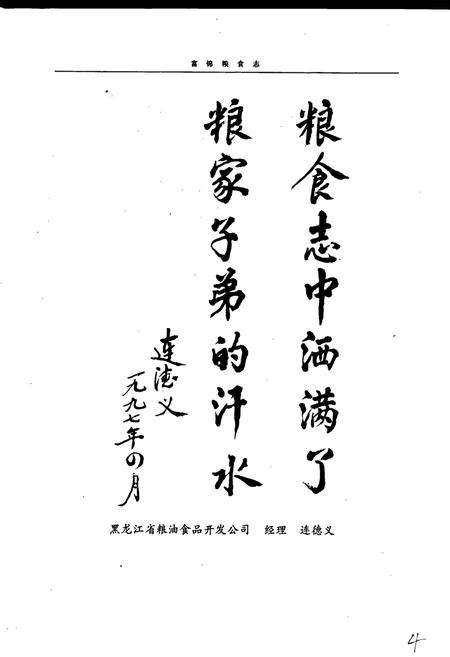 富锦粮食志
粮食志中洒满了
粮家子弟的汗水
连德义
一九九七年四月
黑龙江省粮油食品开发公司 经理 连德义
4